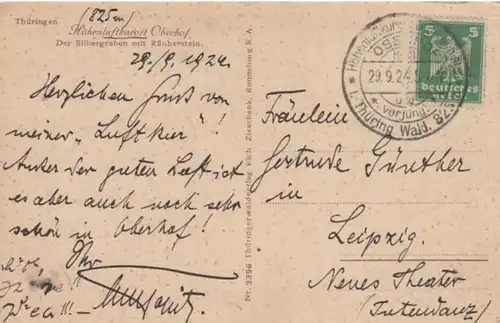 Thüringen
(825m)
Höhenluftkurort Oberhof.
Der Silbergraben mit Räuberstein.
29./9. 1924.
Herzlichen Gruß von
meiner „Luftkur“!
Außer der guten Luft ist
es aber auch noch sehr
schön in Oberhof!
Ihr
Nr. 2396 Thüringerwaldverlag Rich. Zieschank, Ronneburg S. A.
5 5
Deutsches
Reich
29.9.24
i. Thüring Wald. 825
Fräulein
Gertrude Günther
in
Leipzig.
Neues Theater
(Intendanz)